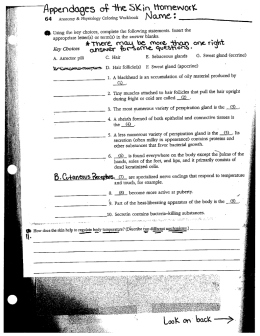 Appendages of the Skin Homework
64 Anatomy & Physiology Coloring Workbook Name:
Using the key choices, complete the following statements. Insert the
appropriate letter(s) or term(s) in the answer blanks.
* There may be more than one right
answer for some questions.
Key Choices
A. Arrector pili C. Hair E. Sebaceous glands G. Sweat gland (eccrine)
D. Hair follicle(s) F. Sweat gland (apocrine)
1. A blackhead is an accumulation of oily material produced by
(1).
2. Tiny muscles attached to hair follicles that pull the hair upright
during fright or cold are called (2).
3. The most numerous variety of perspiration gland is the (3).
4. A sheath formed of both epithelial and connective tissues is
the (4).
5. A less numerous variety of perspiration gland is the (5). Its
secretion (often milky in appearance) contains proteins and
other substances that favor bacterial growth.
6. (6) is found everywhere on the body except the palms of the
hands, soles of the feet, and lips, and it primarily consists of
dead keratinized cells.
B. Cutaneous Receptors 7. (7) are specialized nerve endings that respond to temperature
and touch, for example.
8. (8) become more active at puberty.
9. Part of the heat-liberating apparatus of the body is the (9).
10. Secretin contains bacteria-killing substances.
11. How does the skin help to regulate body temperature? (Describe two different mechanisms)
Look on back →